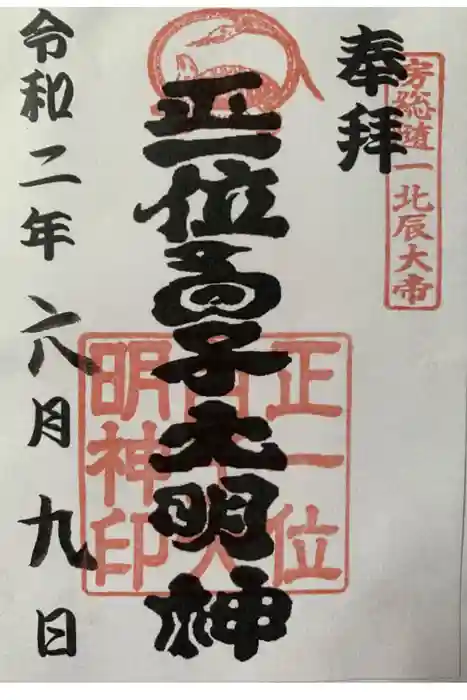 奉拝
房総随一北辰大帝
正一位白子大明神
正一位
白子大
明神印
令和二年六月九日